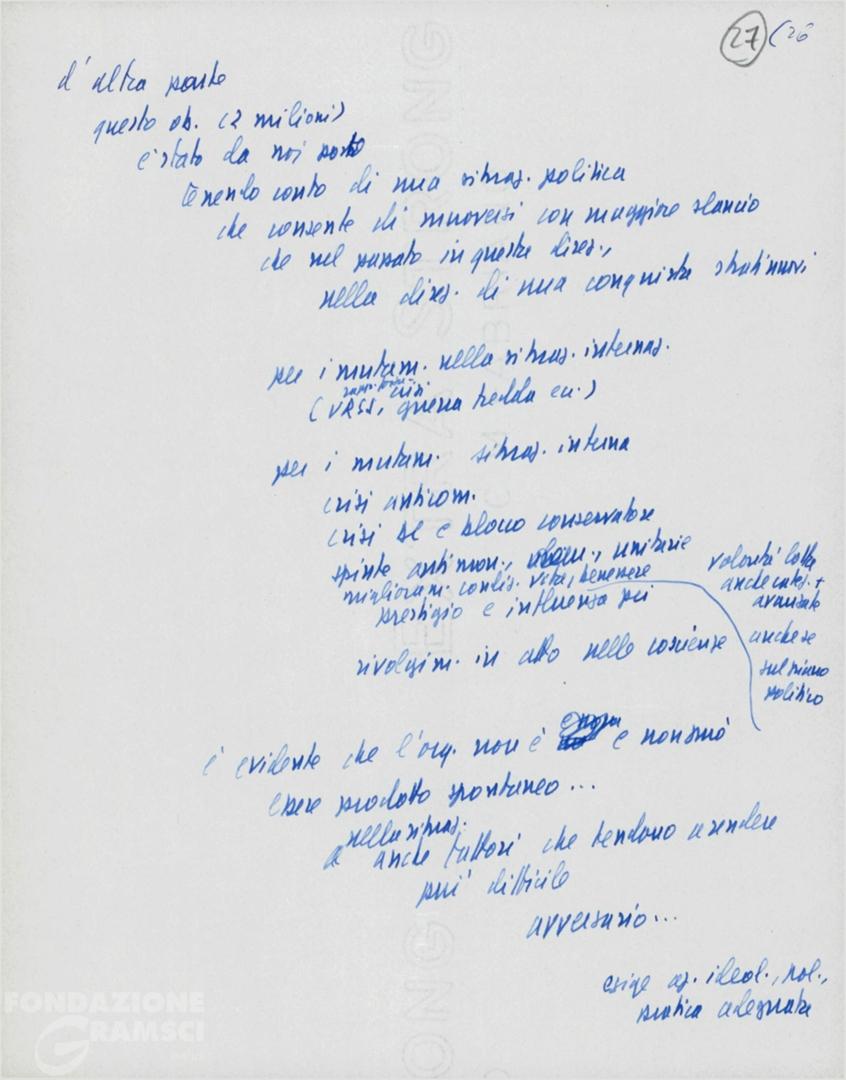 27 (26
d'altra parte
questo ob. (2 milioni)
è stato da noi posto
tenendo conto di una situaz. politica
che consente di muoversi con maggiore slancio
che nel passato in questa direz.,
nella direz. di una conquista strati nuovi
per i mutam. nella situaz. internaz.
rapp. forze
(URSS, crisi guerra fredda ecc.)
per i mutam. situaz. interna
crisi anticom.
crisi DC e blocco conservatore
spinte antimon., unitarie
miglioram. condiz. vita, benessere
prestigio e influenza PCI
volontà lotta
anche categ. +
avanzate
anche se
sul piano
politico
rivolgim. in atto nelle coscienze
è evidente che l'org. non è e non può
essere prodotto spontaneo...
nella situaz.
anche fattori che tendono a rendere
più difficile
avversario...
esige az. ideol., pol.,
pratica adeguata
FONDAZIONE
GRAMSCI
EXTRA STRONG